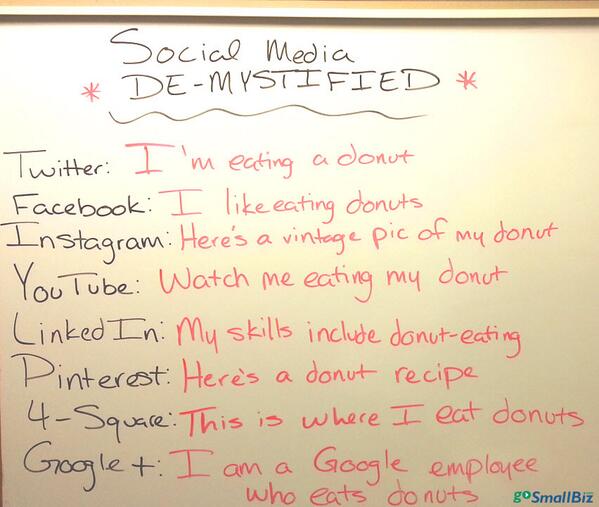 Social Media
* DE-MYSTIFIED *
Twitter: I'm eating a donut
Facebook: I like eating donuts
Instagram: Here's a vintage pic of my donut
YouTube: Watch me eating my donut
LinkedIn: My skills include donut-eating
Pinterest: Here's a donut recipe
4-Square: This is where I eat donuts
Google+: I am a Google employee
who eats donuts
goSmallBiz